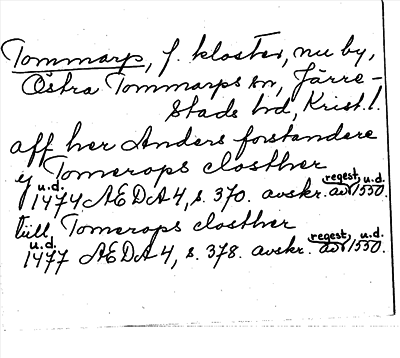 Tommarp, f. kloster, nu by,
Östra Tommarps sn, Järre-
stads hd, Krist. l.
aff her Anders forstandere
ij Tomerops closther
u.d. 1474 AEDA 4, s. 370. avskr. av regest, u.d. 1550.
till Tomerops closther
u.d. 1477 AEDA 4, s. 378. avskr. av regest, u.d. 1550.